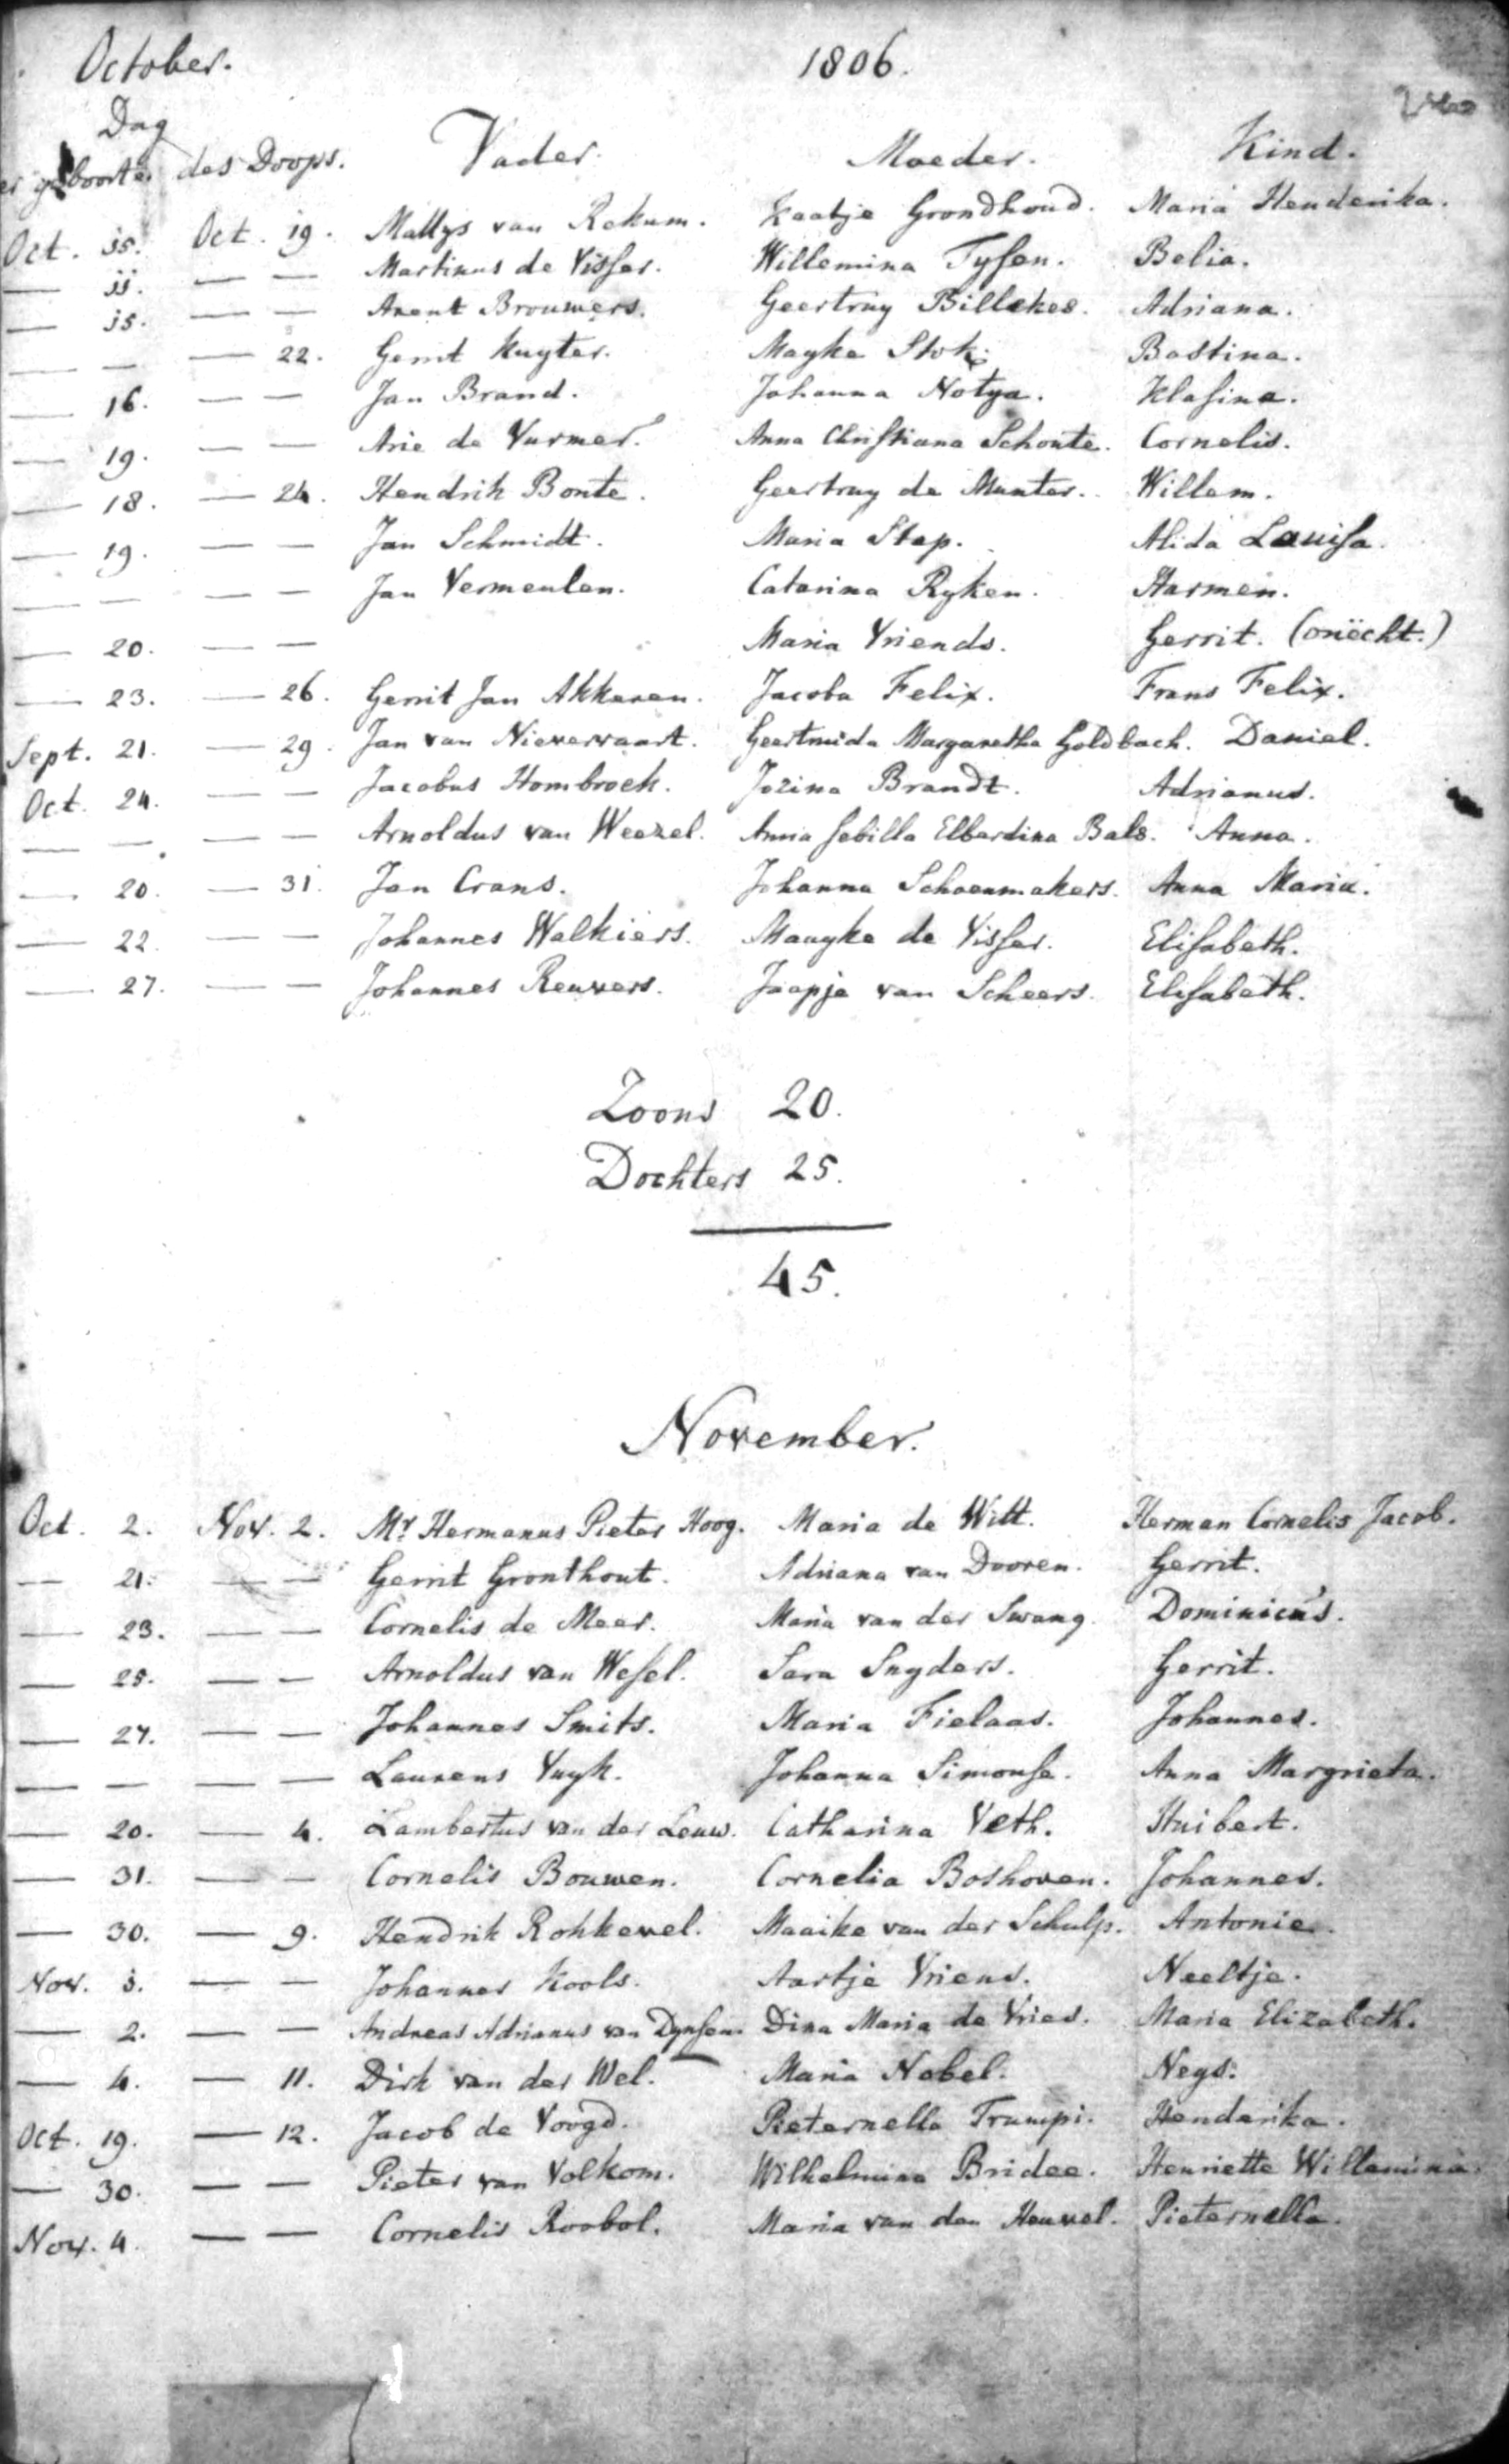 October. 1806.
Dag
geboorte des Doops. Vader. Moeder. Kind.
Oct. 15. Oct. 19. Mattys van Rekum. Kaatje Grondhoud. Maria Henderika.
— 11. — — Martinus de Visser. Willemina Tysen. Belia.
— 15. — — Arent Brouwers. Geertruy Billekes. Adriana.
— — — 22. Gerrit Kuyter. Mayke Stok. Bastina.
— 16. — — Jan Brand. Johanna Notya. Klasina.
— 19. — — Arie de Vurmer. Anna Christiana Schoute. Cornelis.
— 18. — 24. Hendrik Bonte. Geertruy de Munter. Willem.
— 19. — — Jan Schmidt. Maria Stap. Alida Louisa.
— — — — Jan Vermeulen. Catarina Ryken. Harmen.
— 20. — — Maria Vriends. Gerrit. (onëcht.)
— 23. — 26. Gerrit Jan Akkeren. Jacoba Felix. Frans Felix.
Sept. 21. — 29. Jan van Nievervaart. Geertruida Margaretha Goldbach. Daniel.
Oct. 24. — — Jacobus Hombroek. Jozina Brandt. Adrianus.
— — — — Arnoldus van Weezel. Anna Sebilla Elberdina Bals. Anna.
— 20. — 31. Jan Crans. Johanna Schoenmakers. Anna Maria.
— 22. — — Johannes Walkiers. Maayke de Visser. Elisabeth.
— 27. — — Johannes Reuvers. Jaapje van Scheers. Elisabeth.
Zoons 20.
Dochters 25.
45.
November.
Oct. 2. Nov. 2. Mr. Hermanus Pieter Hoog. Maria de Witt. Herman Cornelis Jacob.
— 21. — — Gerrit Gronthout. Adriana van Dooren. Gerrit.
— 23. — — Cornelis de Meer. Maria van der Swang. Dominicus.
— 25. — — Arnoldus van Wesel. Sara Snyders. Gerrit.
— 27. — — Johannes Smits. Maria Fielaas. Johannes.
— — — — Laurens Vuyk. Johanna Simonse. Anna Margrieta.
— 20. — 4. Lambertus van der Leuw. Catharina Veth. Huibert.
— 31. — — Cornelis Bouwen. Cornelia Boshoven. Johannes.
— 30. — 9. Hendrik Rohkevel. Maaike van der Schulp. Antonie.
Nov. 3. — — Johannes Kools. Aartje Vriens. Neeltje.
— 2. — — Andreas Adrianus van Dynsen. Dina Maria de Vries. Maria Elizabeth.
— 4. — 11. Dirk van der Wel. Maria Nobel. Negs:
Oct. 19. — 12. Jacob de Voogd. Pieternella Trumpi. Henderika.
— 30. — — Pieter van Volkom. Wilhelmina Bridee. Henriette Willemina.
Nov. 4. — — Cornelis Roobol. Maria van den Heuvel. Pieternella.